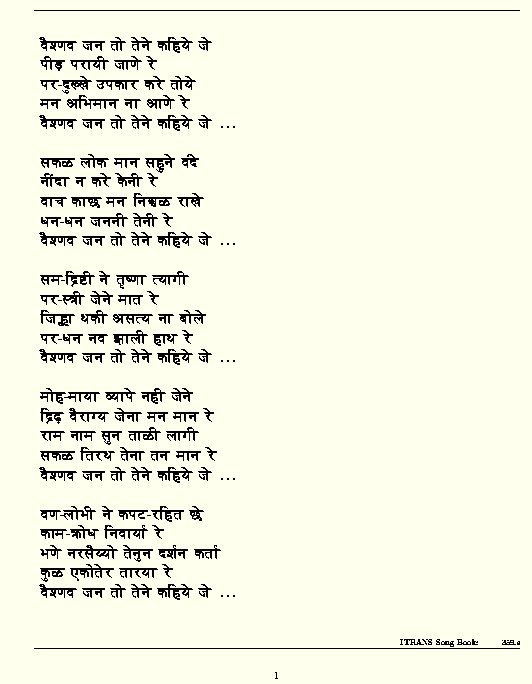 वैश्णव जन तो तेने कहिये जे
पीड़ परायी जाणे रे
पर-दुख्खे उपकार करे तोये
मन अभिमान ना आणे रे
वैश्णव जन तो तेने कहिये जे ...
सकळ लोक मान सहुने वंदे
नींदा न करे केनी रे
वाच काछ मन निश्चळ राखे
धन-धन जननी तेनी रे
वैश्णव जन तो तेने कहिये जे ...
सम-द्रिष्टी ने तृष्णा त्यागी
पर-स्त्री जेने मात रे
जिह्वा थकी असत्य ना बोले
पर-धन नव झाली हाथ रे
वैश्णव जन तो तेने कहिये जे ...
मोह-माया व्यापे नही जेने
द्रिढ़ वैराग्य जेना मन मान रे
राम नाम सुन ताळी लागी
सकळ तिरथ तेना तन मान रे
वैश्णव जन तो तेने कहिये जे ...
वण-लोभी ने कपट-रहित छे
काम-क्रोध निवार्या रे
भणे नरसैय्यो तेनुन दर्शन कर्ता
कुळ एकोतेर तारया रे
वैश्णव जन तो तेने कहिये जे ...
ITRANS Song Book:
1